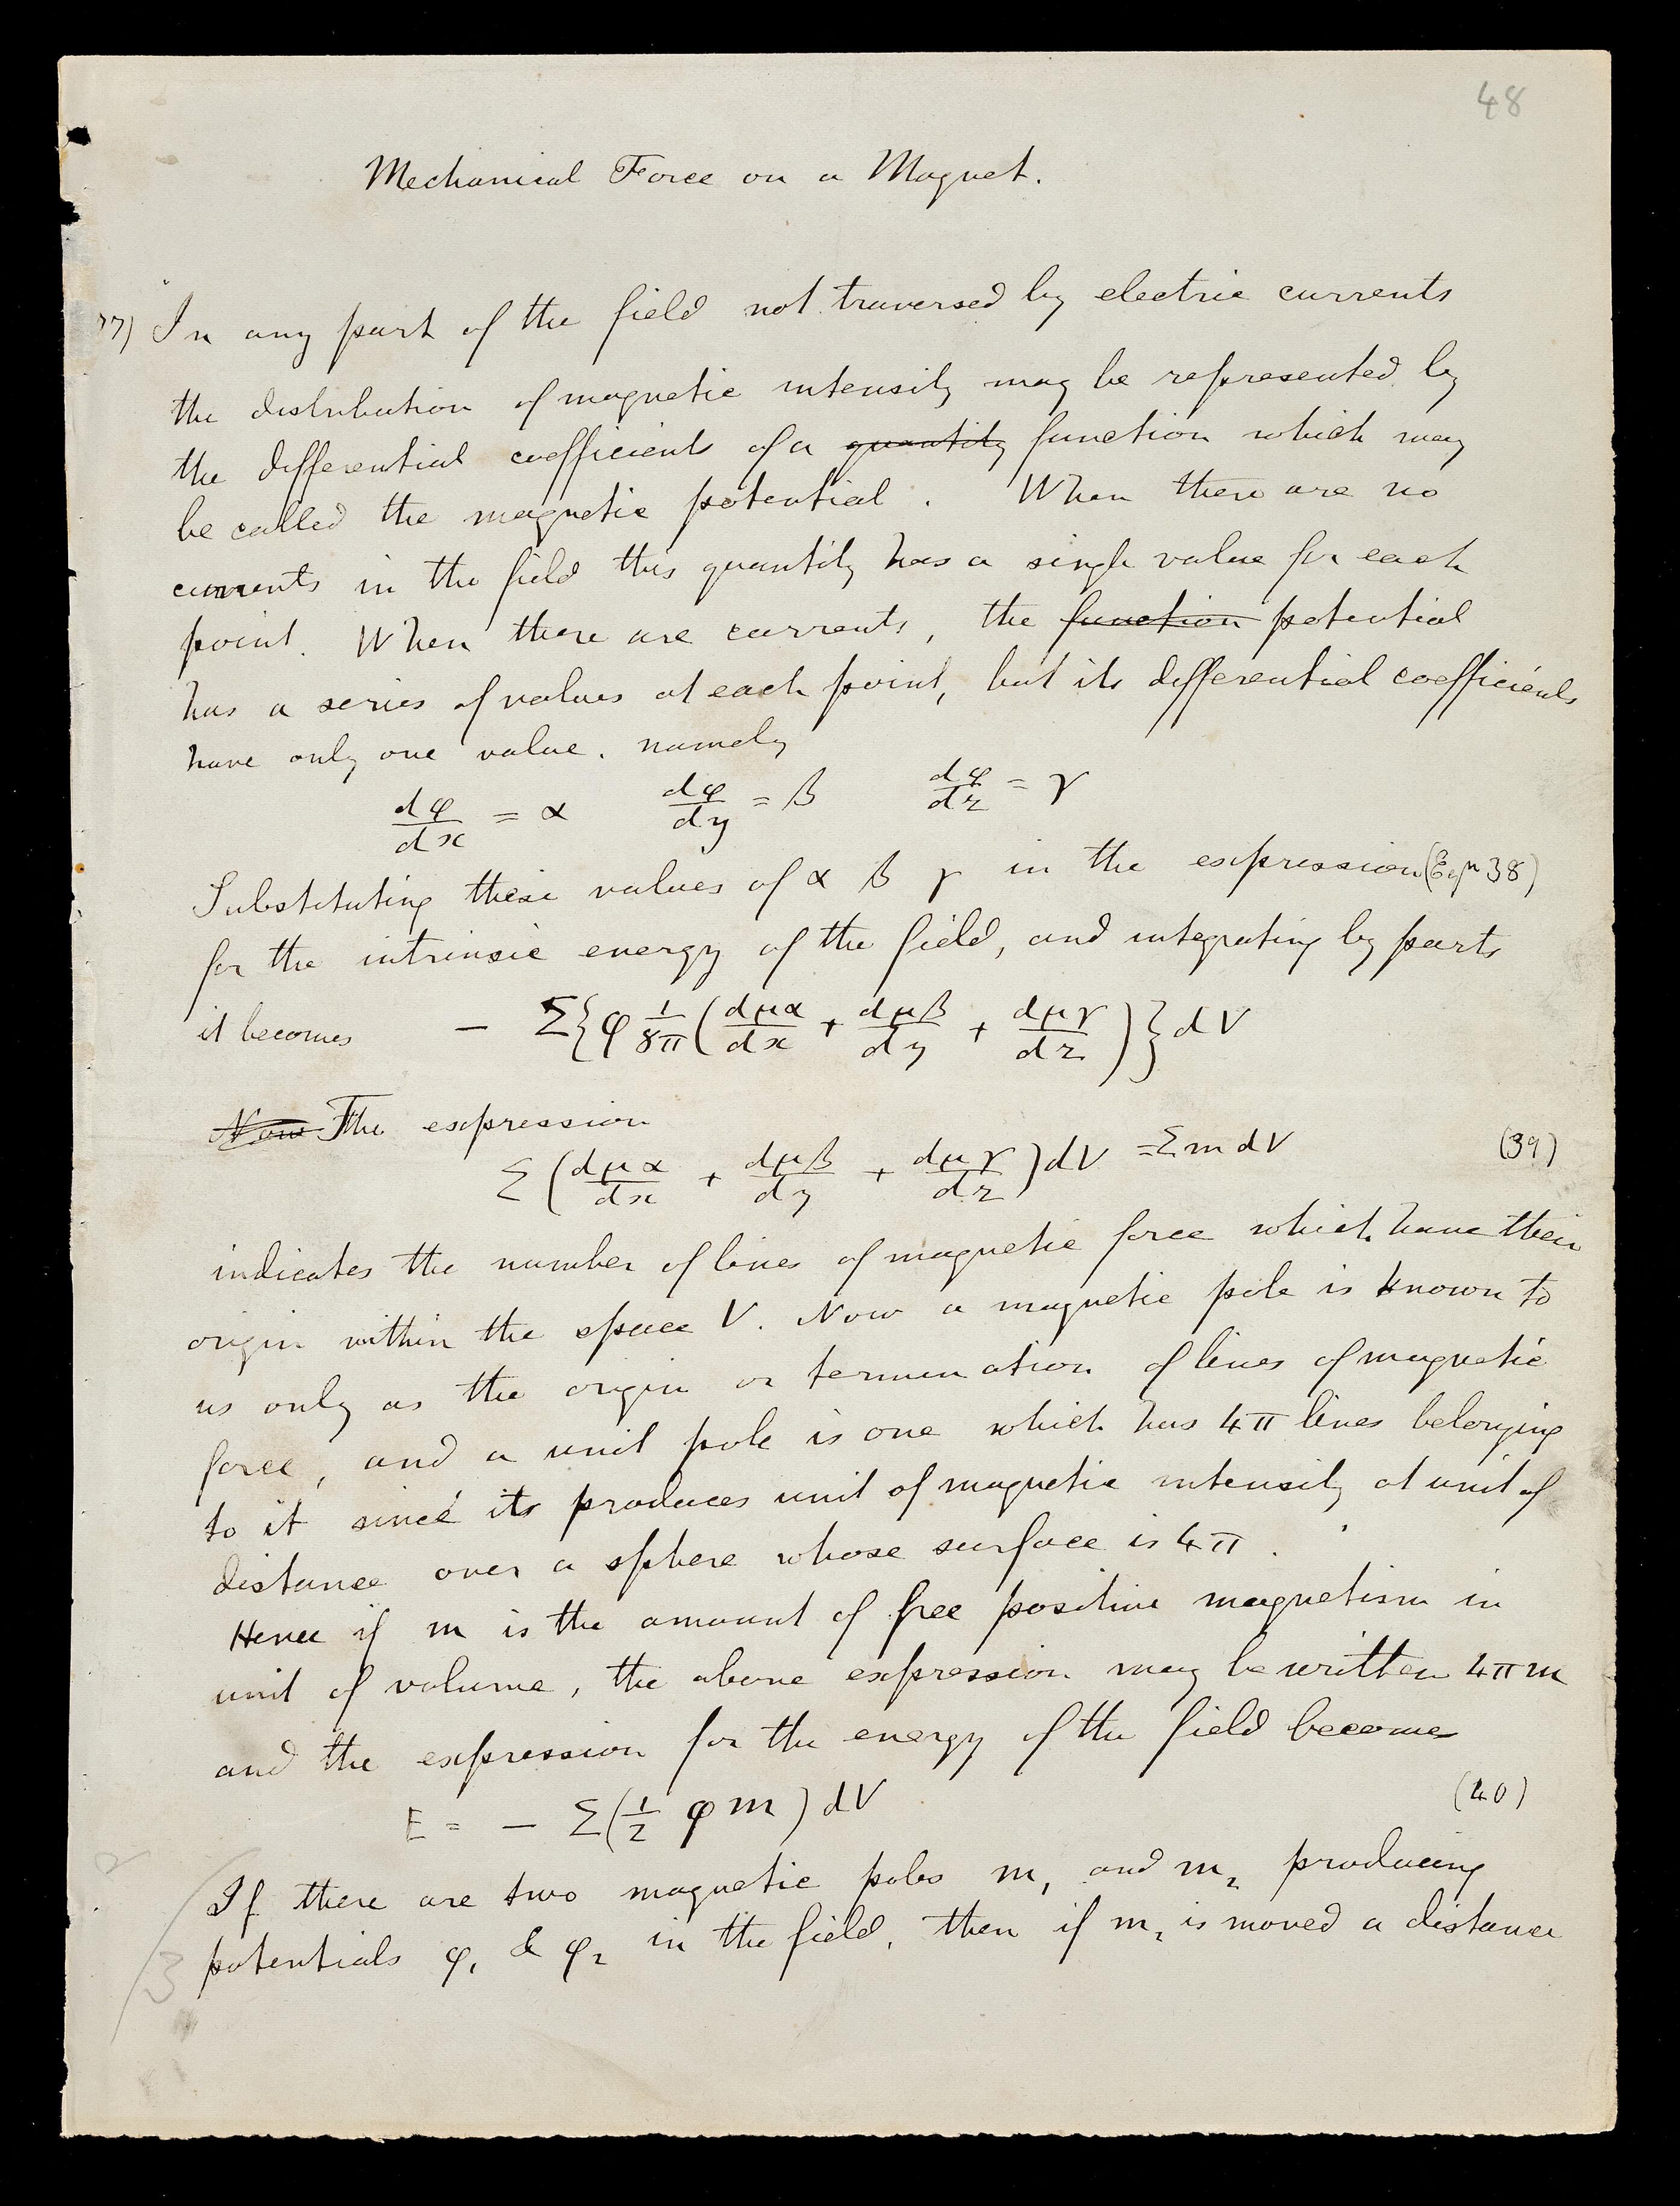 48
Mechanical Force on a Magnet.
77) In any part of the field not traversed by electric currents
the distribution of magnetic intensity may be represented by
the differential coefficients of a quantity function which may
be called the magnetic potential. When there are no
currents in the field this quantity has a single value for each
point. When there are currents, the function potential
has a series of values at each point, but its differential coefficients
have only one value, namely
dφ/dx = α dφ/dy = β dφ/dz = γ
Substituting these values of α β γ in the expression (Eqn 38)
for the intrinsic energy of the field, and integrating by parts
it becomes − Σ{φ 1/8π (dμα/dx + dμβ/dy + dμγ/dz)} dV
Now The expression
Σ (dμα/dx + dμβ/dy + dμγ/dz) dV = Σ m dV (39)
indicates the number of lines of magnetic force which have their
origin within the space V. Now a magnetic pole is known to
us only as the origin or termination of lines of magnetic
force, and a unit pole is one which has 4π lines belonging
to it since its produces unit of magnetic intensity at unit of
distance over a sphere whose surface is 4π.
Hence if m is the amount of free positive magnetism in
unit of volume, the above expression may be written 4πm
and the expression for the energy of the field becomes
E = − Σ(1/2 φ m) dV (40)
If there are two magnetic poles m₁ and m₂ producing
potentials φ₁ & φ₂ in the field, then if m₂ is moved a distance
3